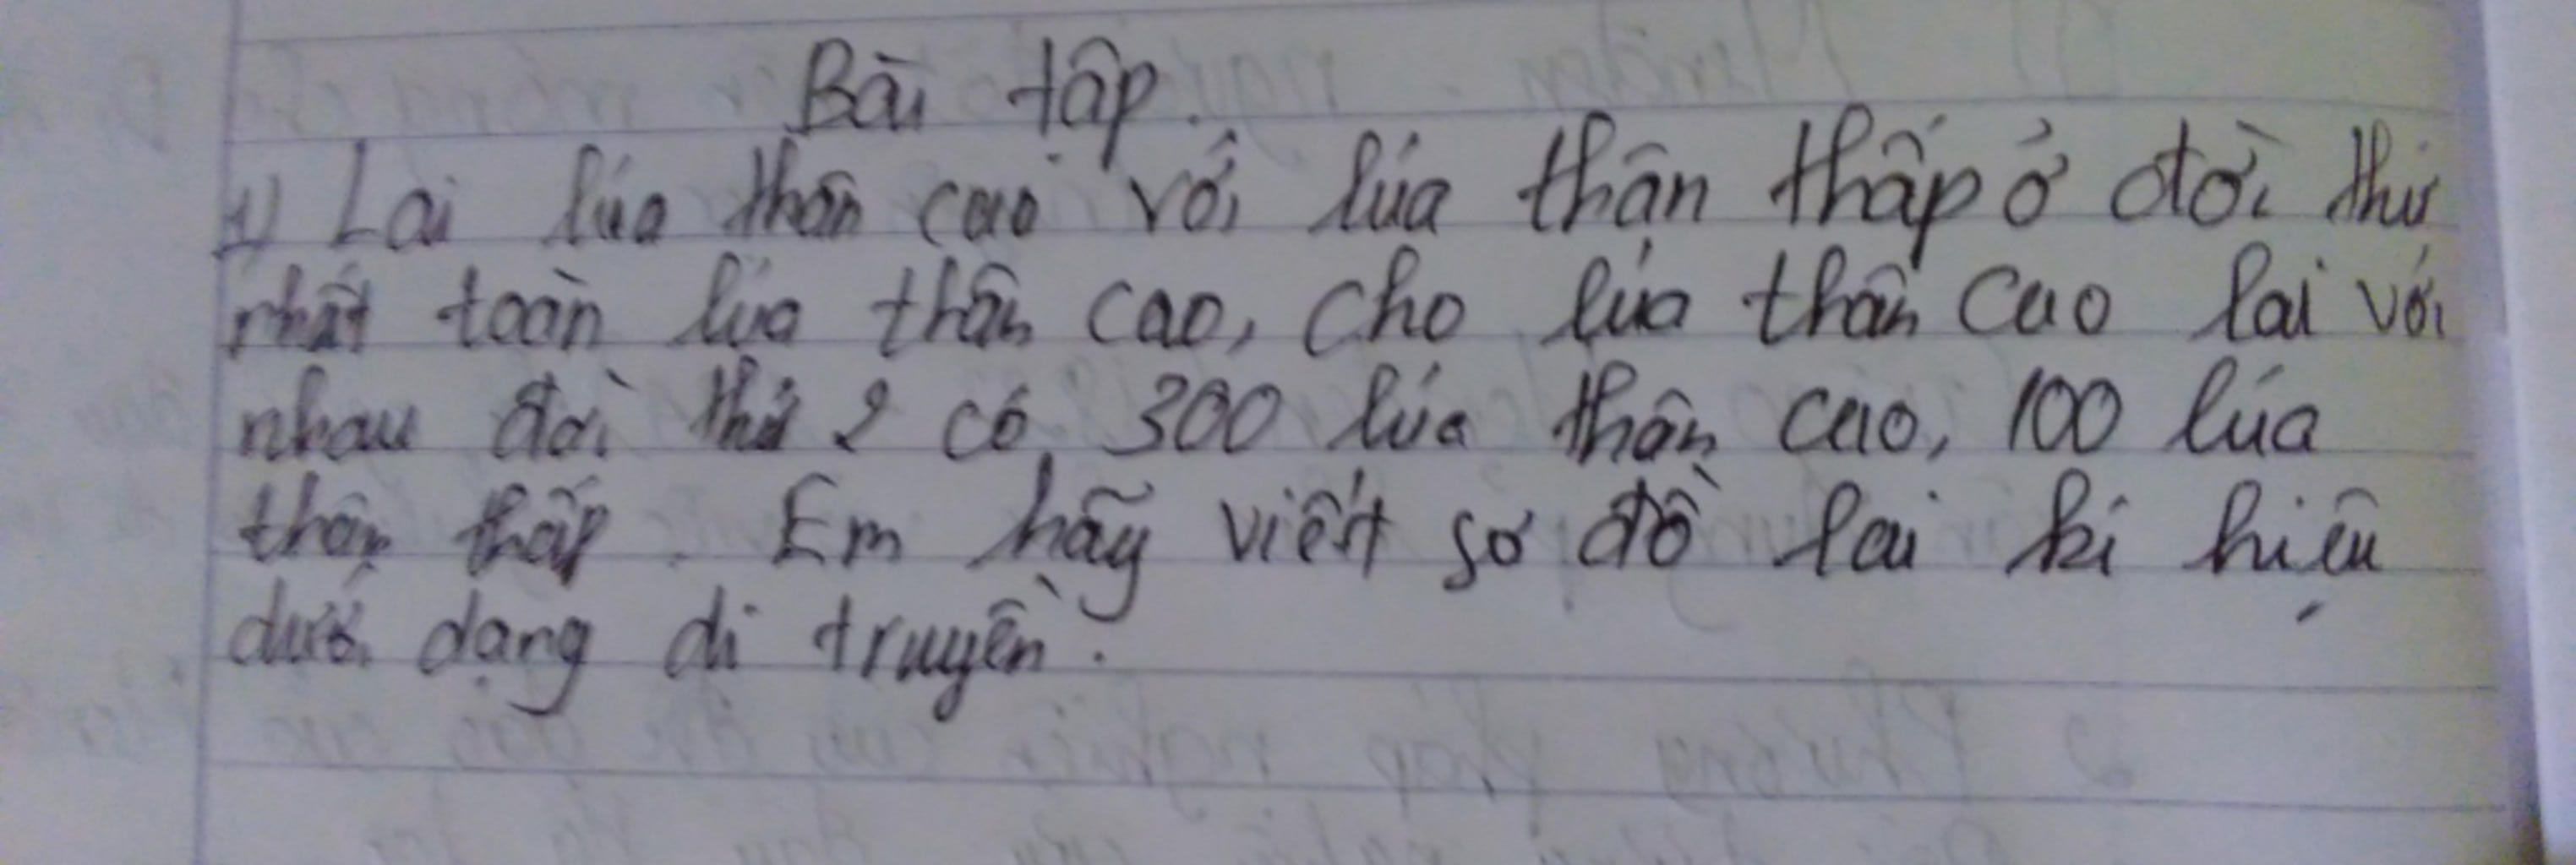 Bài tập.
1) Lai lúa thân cao với lúa thân thấp ở đời thứ
nhất toàn lúa thân cao, cho lúa thân cao lai với
nhau đời thứ 2 có 300 lúa thân cao, 100 lúa
thân thấp. Em hãy viết sơ đồ lai kí hiệu
dưới dạng di truyền.